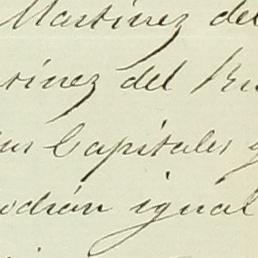 Martinez del
tinez del
sus Capitales y
odrán igual